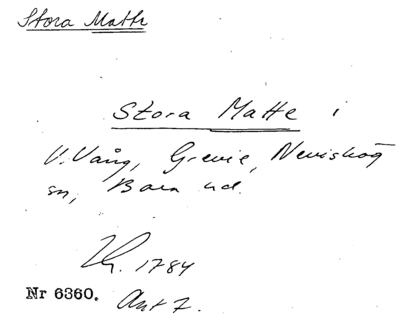 Stora Matte
Stora Matte i
V. Vång, Grevie, Neviskög
sn, Bara hd.
Th. 1784
Nr 6360. Ant 7.